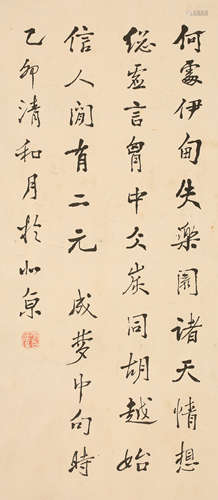 何處伊甸失樂園諸天情想
總虛言胷中冰炭同胡越始
信人間有二元　成夢中句時
乙卯清和月於北京